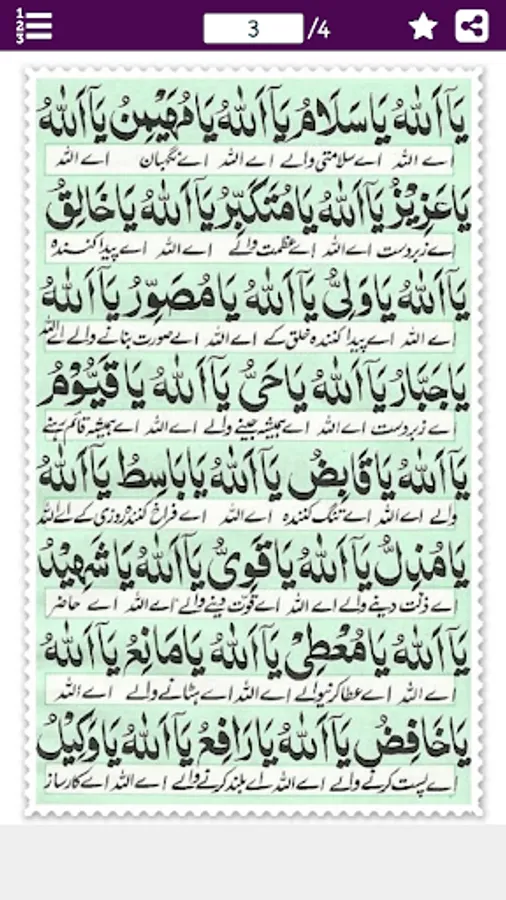 1
2
3
3 /4
يَآ اَللّٰهُ يَا سَلَامُ يَآ اَللّٰهُ يَا مُهَيْمِنُ يَآ اَللّٰهُ
اے اللہ اے سلامتی والے اے اللہ اے نگہبان اے اللہ
يَا عَزِيْزُ يَآ اَللّٰهُ يَا مُتَكَبِّرُ يَآ اَللّٰهُ يَا خَالِقُ
اے زبردست اے اللہ اے عظمت والے اے اللہ اے پیدا کنندہ
يَآ اَللّٰهُ يَا وَلِىُّ يَآ اَللّٰهُ يَا مُصَوِّرُ يَآ اَللّٰهُ
اے اللہ اے پیدا کنندہ خلق کے اے اللہ اے صورت بنانے والے اے اللہ
يَا جَبَّارُ يَآ اَللّٰهُ يَا حَىُّ يَآ اَللّٰهُ يَا قَيُّوْمُ
اے زبردست اے اللہ اے ہمیشہ جینے والے اے اللہ اے ہمیشہ قائم رہنے
يَآ اَللّٰهُ يَا قَابِضُ يَآ اَللّٰهُ يَا بَاسِطُ يَآ اَللّٰهُ
والے اے اللہ اے تنگ کنندہ اے اللہ اے فراخ کنندہ روزی کے اے اللہ
يَا مُذِلُّ يَآ اَللّٰهُ يَا قَوِىُّ يَآ اَللّٰهُ يَا شَهِيْدُ
اے ذلت دینے والے اے اللہ اے قوت دینے والے اے اللہ اے حاضر
يَآ اَللّٰهُ يَا مُعْطِىْ يَآ اَللّٰهُ يَا مَانِعُ يَآ اَللّٰهُ
اے اللہ اے عطا کرنیوالے اے اللہ اے ہٹانے والے اے اللہ
يَا خَافِضُ يَآ اَللّٰهُ يَا رَافِعُ يَآ اَللّٰهُ يَا وَكِيْلُ
اے پست کرنے والے اے اللہ اے بلند کرنے والے اے اللہ اے کارساز